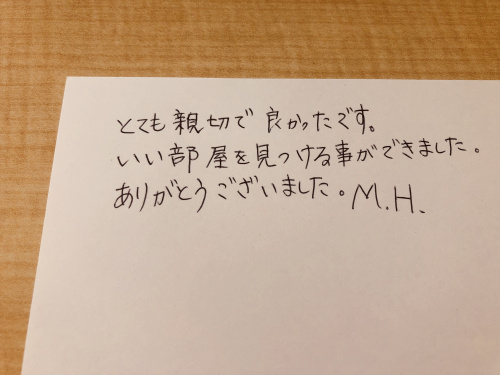 とても親切で良かったです。
いい部屋を見つける事ができました。
ありがとうございました。M.H.